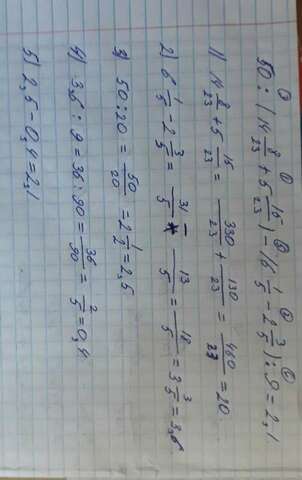 50 : (14 8/23 + 5 15/23) - (6 1/5 - 2 3/5) : 9 = 2,1
1) 14 8/23 + 5 15/23 = 330/23 + 130/23 = 460/23 = 20.
2) 6 1/5 - 2 3/5 = 31/5 - 13/5 = 18/5 = 3 3/5 = 3,6
3) 50 : 20 = 50/20 = 2 1/2 = 2,5
4) 3,6 : 9 = 36 : 90 = 36/90 = 2/5 = 0,4
5) 2,5 - 0,4 = 2,1